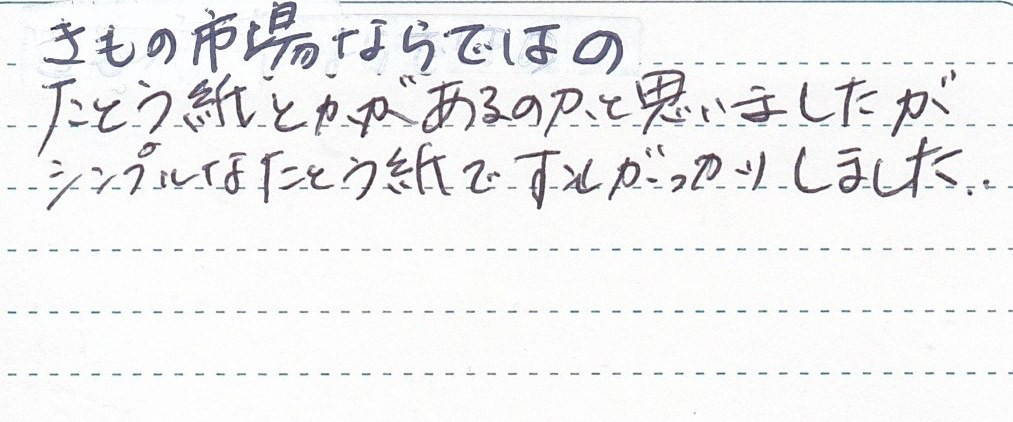 きもの市場ならではの
たとう紙とかがあるのかと思いましたが
シンプルなたとう紙で少しがっかりしました..